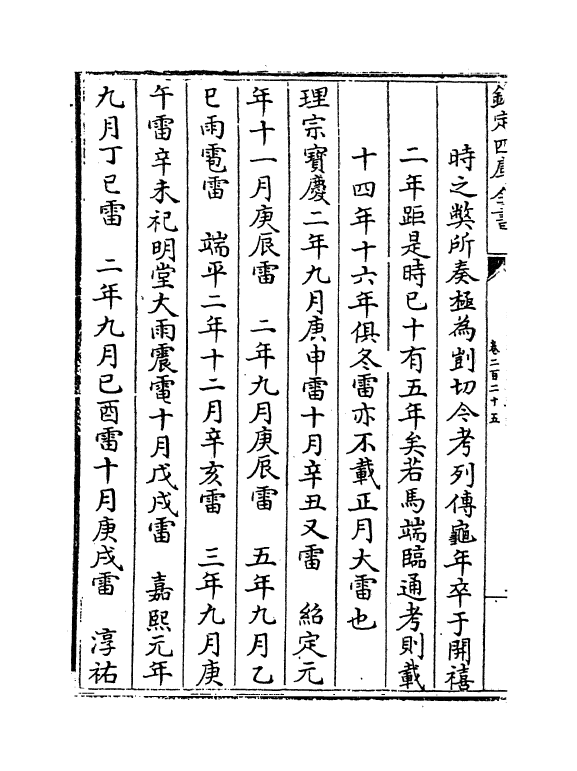 欽定四庫全書
卷二百二十五
時之弊所奏極為剴切今考列傳龜年卒于開禧
二年距是時已十有五年矣若馬端臨通考則載
十四年十六年俱冬雷亦不載正月大雷也
理宗寶慶二年九月庚申雷十月辛丑又雷　紹定元
年十一月庚辰雷　二年九月庚辰雷　五年九月乙
巳雨雹雷　端平二年十二月辛亥雷　三年九月庚
午雷辛未祀明堂大雨震電十月戊戌雷　嘉熙元年
九月丁巳雷　二年九月己酉雷十月庚戌雷　淳祐